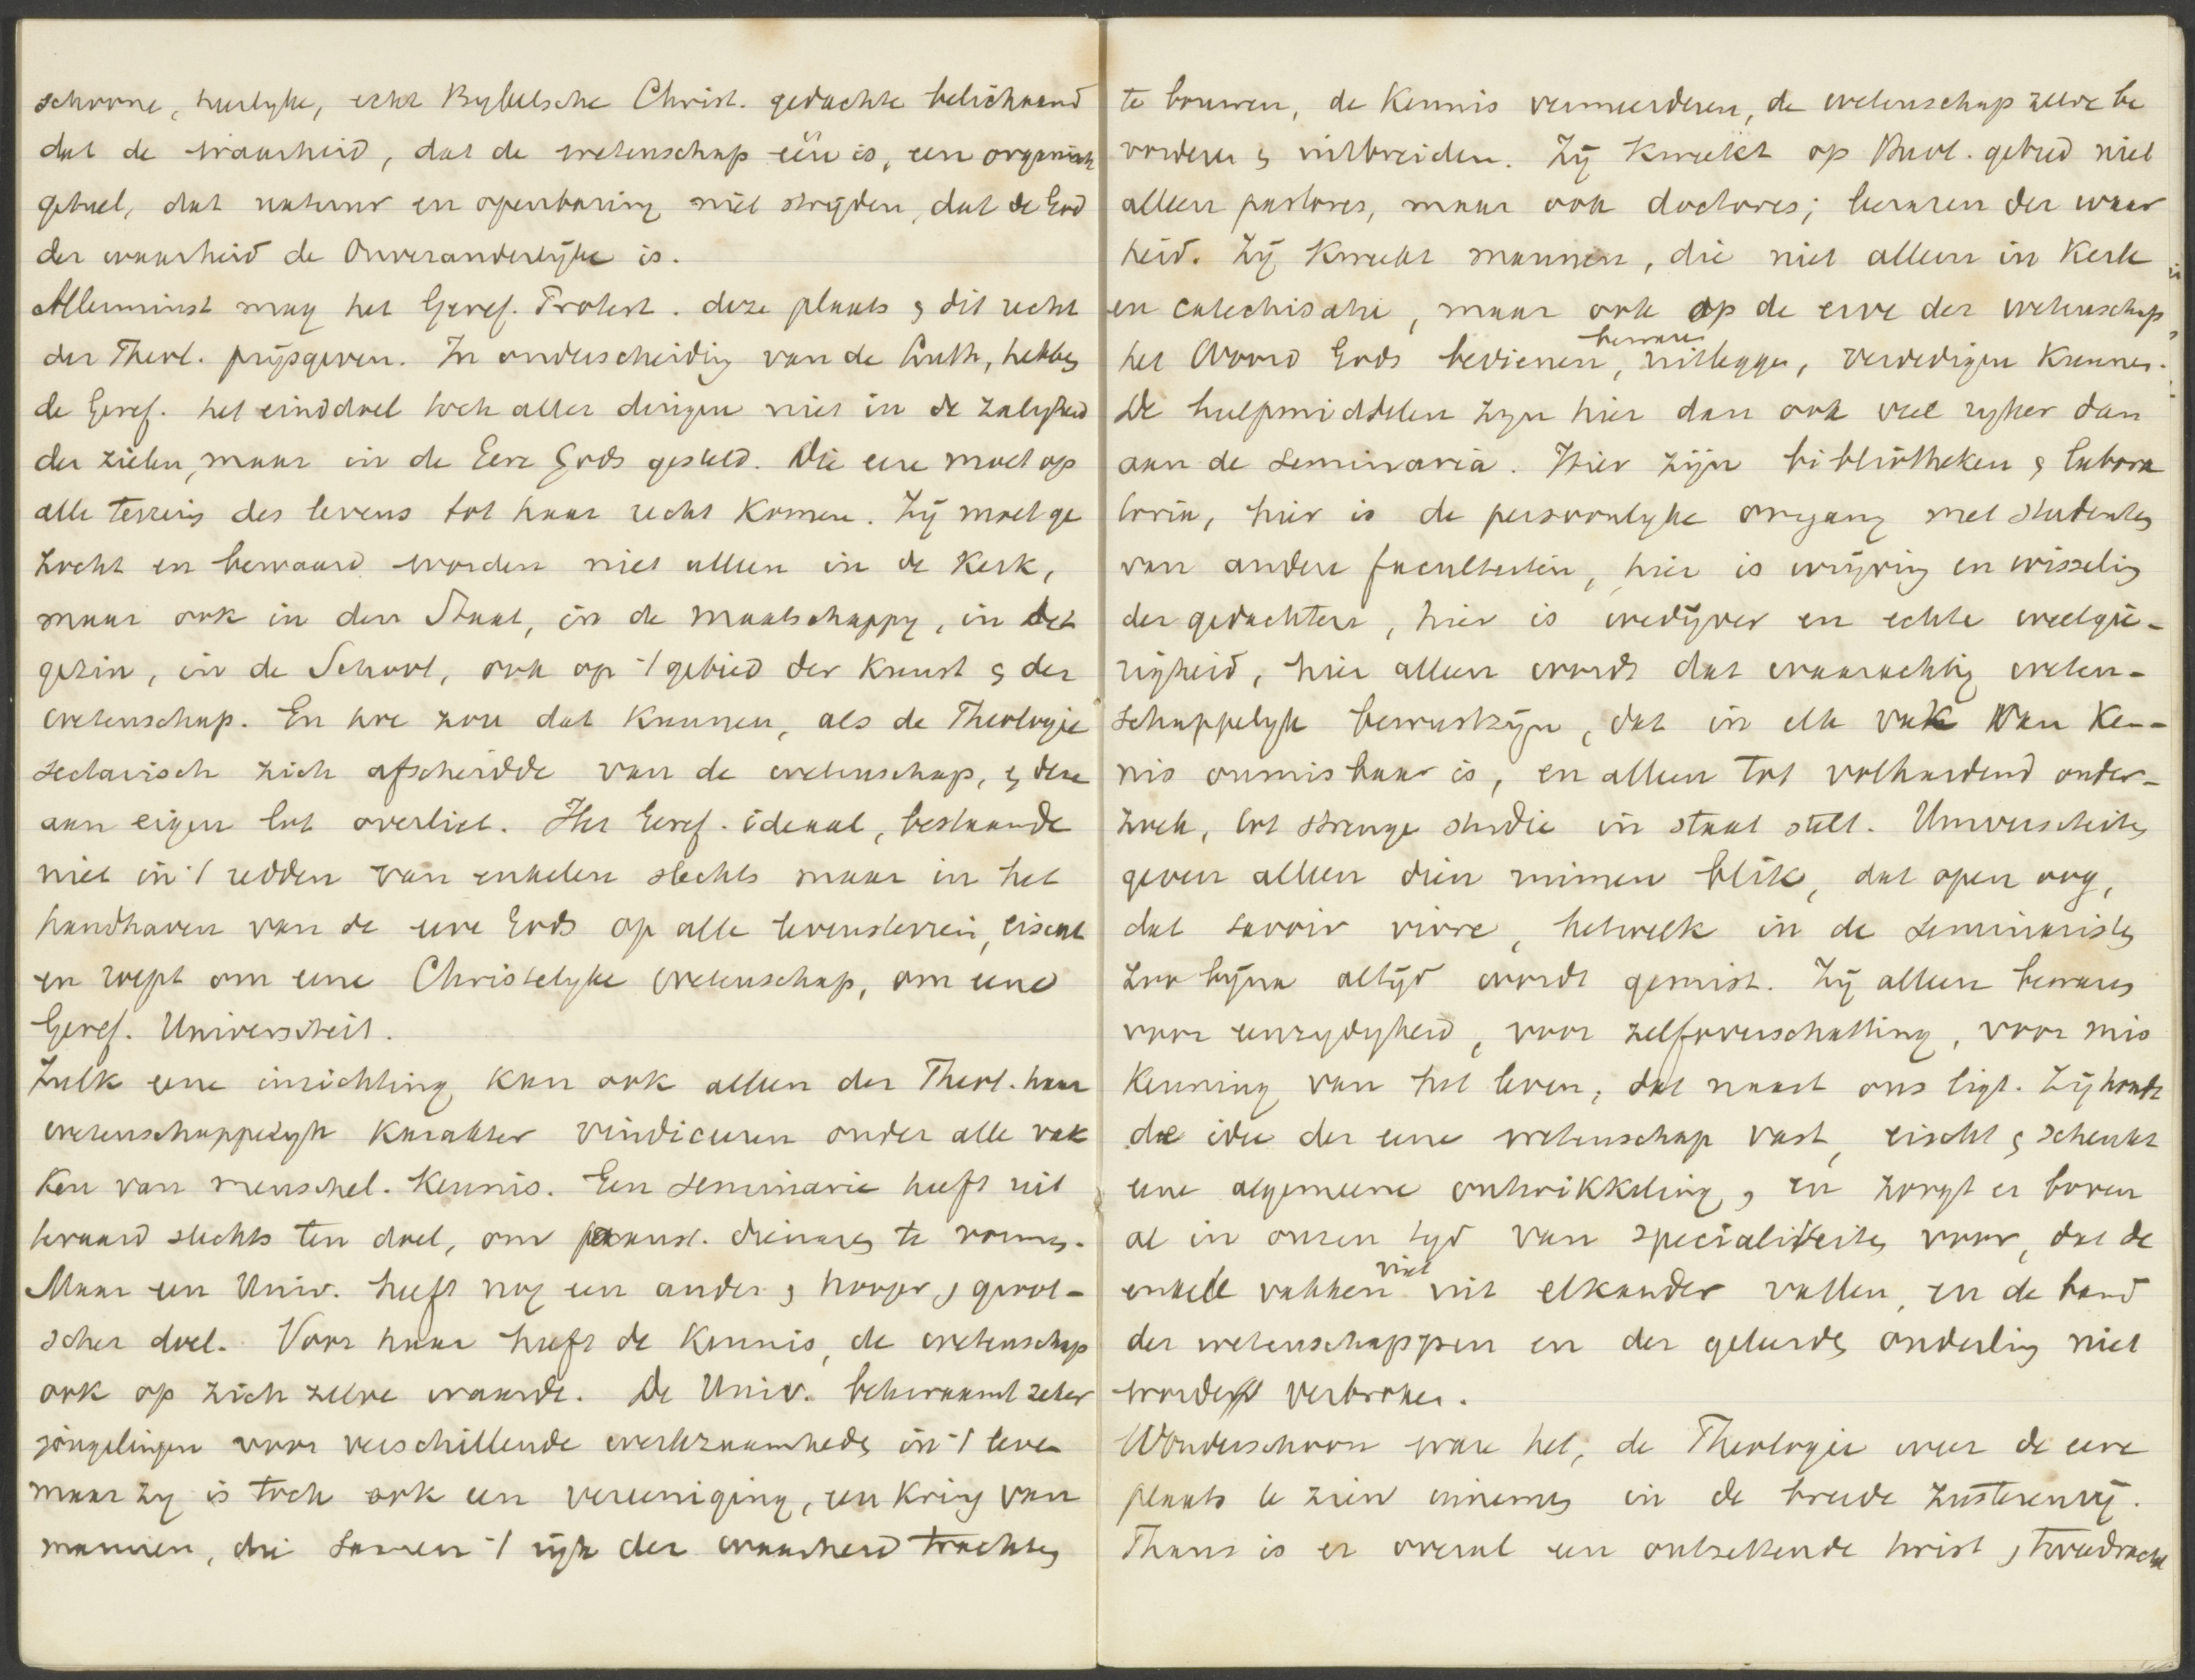 schoone, heerlyke, echt Bybelsche Christ. gedachte belichaamd
dat de waarheid, dat de wetenschap één is, een organisch
geheel, dat natuur en openbaring niet stryden, dat de God
der waarheid de Onveranderlijke is.
Allerminst mag het Geref. Protest. deze plaats & dit recht
der Theol. prijsgeven. In onderscheiding van de Luth, hebben
de Geref. het einddoel toch aller dingen niet in de zaligheid
der zielen, maar in de Eere Gods gesteld. Die eere moet op
alle terrein des levens tot haar recht komen. Zij moet ge
zocht en bewaard worden niet alleen in de Kerk,
maar ook in den Staat, in de Maatschappy, in het
gezin, in de School, ook op 't gebied der Kunst & der
wetenschap. En hoe zou dat kunnen, als de Theologie
sectarisch zich afscheidde van de wetenschap, & deze
aan eigen lot overliet. Het Geref. ideaal, bestaande
niet in 't redden van enkelen slechts maar in het
handhaven van de eere Gods op alle levensterrein, eischt
en roept om eene Christelyke wetenschap, om eene
Geref. Universiteit.
Zulk eene inrichting kan ook alleen der Theol. haar
wetenschappelyk karakter vindiceeren onder alle vak
ken van menschel. Kennis. Een seminarie heeft uit
teraard slechts ten doel, om aanst. dienaren te vormen.
Maar een Univ. heeft nog een ander & hooger & groot-
scher doel. Voor haar heeft de Kennis, de wetenschap
ook op zich zelve waarde. De Univ. bekwaamt zeker
jongelingen voor verschillende werkzaamheden in 't leven
maar zy is toch ook een vereeniging, een kring van
mannen, die samen 't rijk der waarheid trachten
te bouwen, de Kennis vermeerderen, de wetenschap zelve be
vorderen & uitbreiden. Zij kweekt op Theol. gebied niet
alleen pastores, maar ook doctores; leeraren der waar
heid. Zij kweekt mannen, die niet alleen in Kerk
en catechisatie, maar ook op de erve der wetenschap
het Woord Gods bedienen, bewaren, uitleggen, verdedigen kunnen.
De hulpmiddelen zyn hier dan ook veel ryker dan
aan de seminaria. Hier zijn bibliotheken & labora
toria, hier is de persoonlyke omgang met studenten
van andere faculteiten, hier is wrijving en wisseling
der gedachten, hier is wedijver en echte weetgie-
righeid, hier alleen wordt dat waarachtig weten-
schappelyk bewustzijn, dat in elk vak van Ken-
nis onmisbaar is, en alleen tot volhardend onder-
zoek, tot strenge studie in staat stelt. Universiteiten
geven alleen dien ruimen blik, dat open oog,
dat savoir vivre, hetwelk in de seminaristen
zoo bijna altijd wordt gemist. Zij alleen bewaren
voor eenzydigheid, voor zelfoverschatting, voor mis
kenning van het leven, dat naast ons ligt. Zij houdt
de idee der eene wetenschap vast, eischt & schenkt
eene algemeene ontwikkeling, en zorgt er boven
al in onzen tyd van specialiteiten voor, dat de
enkele vakken niet uit elkander vallen, en de band
der wetenschappen en der geleerden onderling niet
worde verbroken.
Wonderschoon ware het, de Theologie weer de eere
plaats te zien innemen in de breede zusterenrij.
Thans is er overal een ontzettende twist & tweedracht